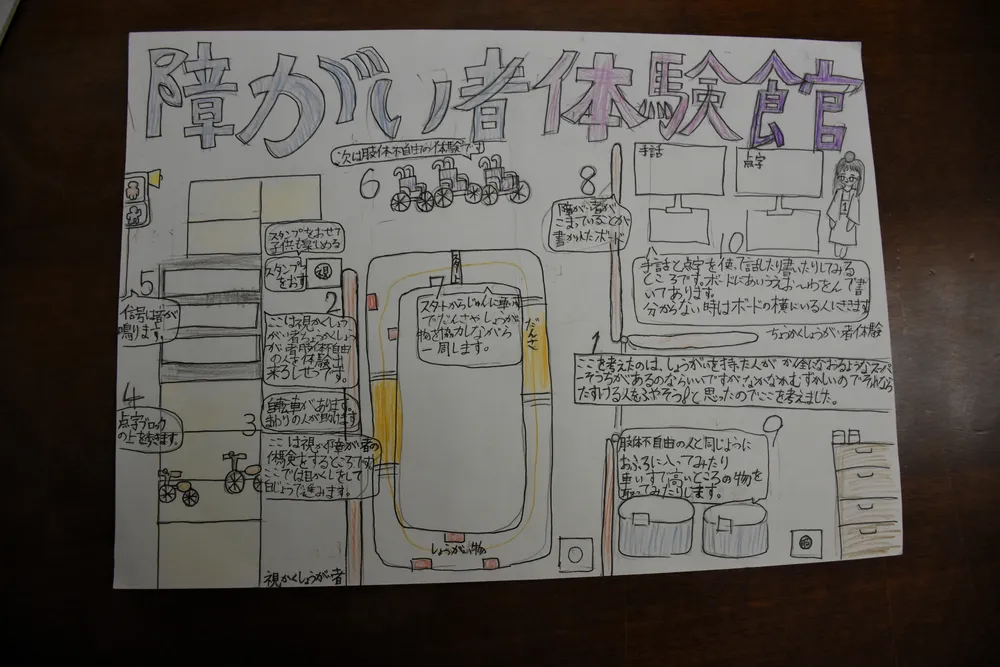 障がい者体験館
次は肢体不自由の体験です
6
8
手話
点字
障がい者が
こまっていることが
書かれたボード
10
手話と点字を使って話したり書いたりしてみる
ところです。ボードにあいうえお〜わをんて書
いてあります。
分からない時はボードの横にいる人にききます
ちょうかくしょうがい者体験
スタンプをおせて
子供も楽しめる
スタンプ
をおす
2
ここは視かくしょう
がい者ちょうかくしょう
がい者肢体不自由
の人を体験出
来るしせつです。
5
信号は音が
鳴ります。
4
点字ブロック
の上を歩きます。
3
自転車があります。
まわりの人が助けます
ここは視かく障がい者の
体験をするところです。
ここでは目かくしをして
白じょうで進みます。
視かくしょうがい者
スタート
7
スタートからじゅんに車いす
でだんさやしょうがい
物を協力しながら
一周します。
だんさ
しょうがい物
1
ここを考えたのは、しょうがいを持った人が かん全になおるようなスーパー
そうちがあるのならいいですがなかなかむずかしいのでそれなら
たすける人をふやそう!と思ったのでここを考えました。
9
肢体不自由の人と同じように
おふろに入ってみたり
車いすで高いところの物を
取ってみたりします。